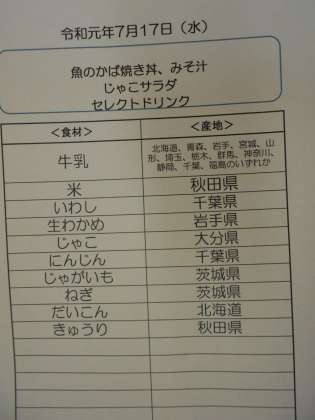 令和元年7月17日（水）
魚のかば焼き丼、みそ汁
じゃこサラダ
セレクトドリンク
＜食材＞ ＜産地＞
牛乳 北海道、青森、岩手、宮城、山
形、埼玉、栃木、群馬、神奈川、
静岡、千葉、福島のいずれか
米 秋田県
いわし 千葉県
生わかめ 岩手県
じゃこ 大分県
にんじん 千葉県
じゃがいも 茨城県
ねぎ 茨城県
だいこん 北海道
きゅうり 秋田県